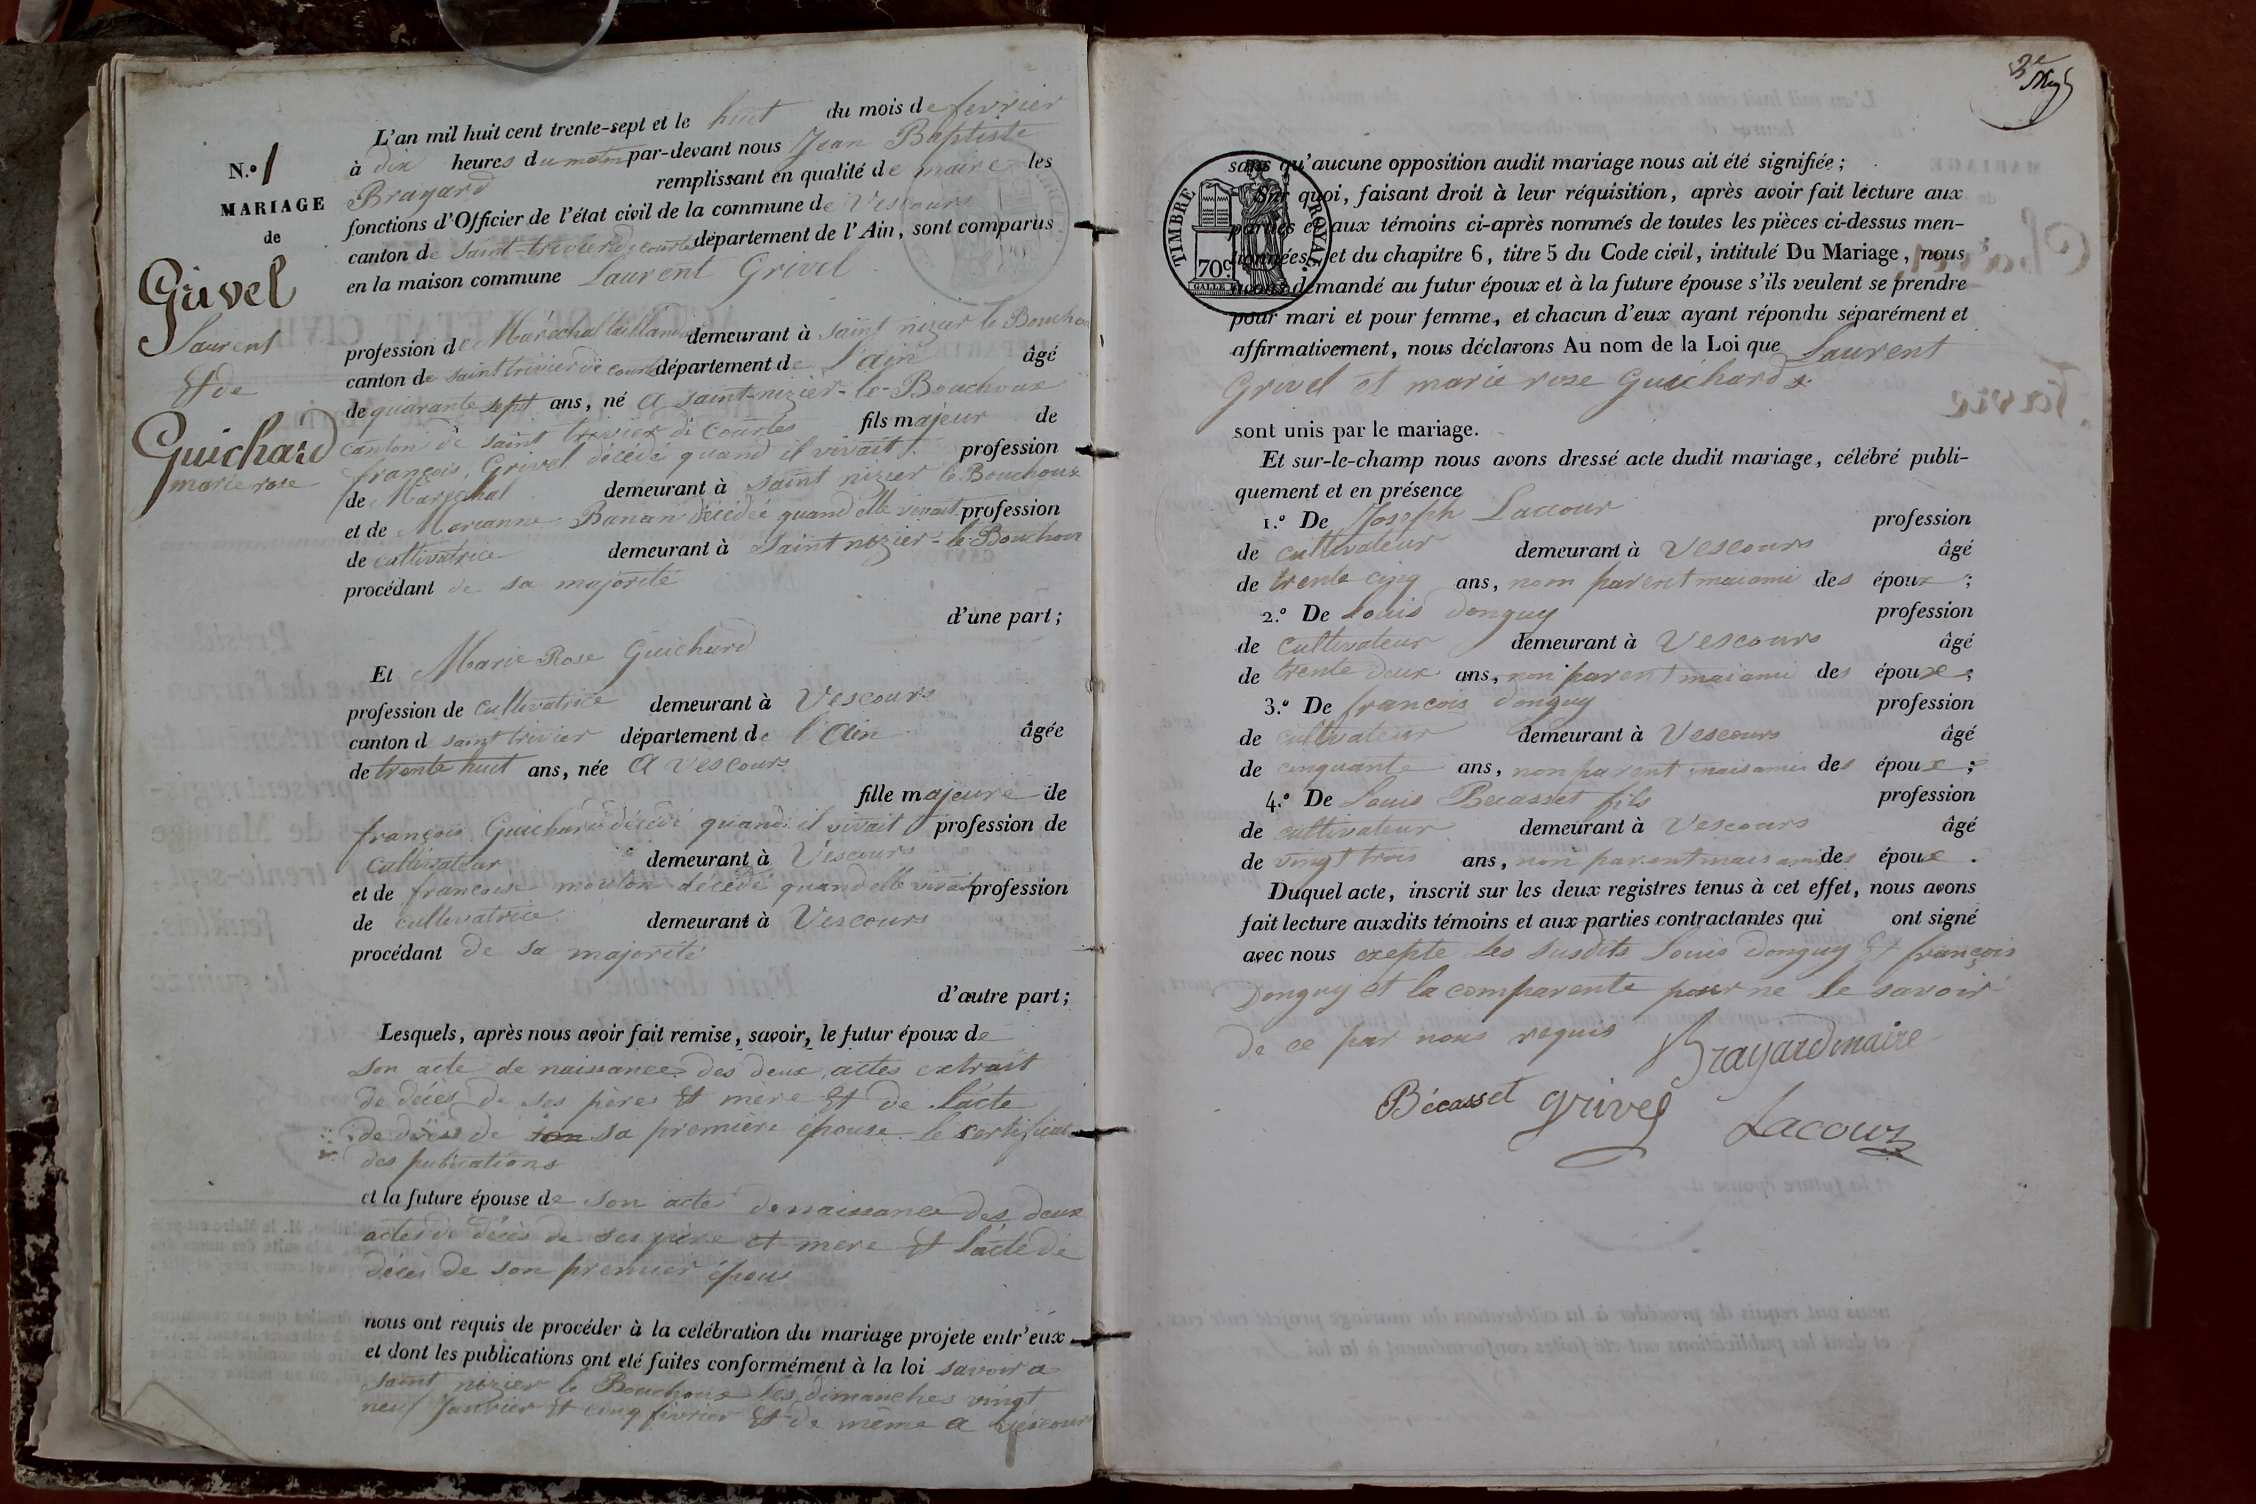 N.° 1
MARIAGE
de
Grivel
Laurent
Et de
Guichard
marie rose
L'an mil huit cent trente-sept et le huit du mois de fevrier
à dix heures du matin par-devant nous Jean Baptiste
Brayard remplissant en qualité de maire les
fonctions d'Officier de l'état civil de la commune de Vescours
canton de Saint-trivier de courtes département de l'Ain, sont comparus
en la maison commune Laurent Grivel
profession de Maréchal taillandier demeurant à saint nizier le Bouchou
canton de saint trivier de courtes département de l'ain âgé
de quarante sept ans, né a saint-nizier-le-Bouchoux
canton de saint trivier de Courtes fils majeur de
françois Grivel décédé quand il vivait profession
de Maréchal demeurant à saint nizier le Bouchoux
et de Marianne Banan décédée quand elle vivait profession
de cultivatrice demeurant à saint nizier-le-Bouchou
procédant de sa majorité
d'une part;
Et Marie Rose Guichard
profession de Cultivatrice demeurant à Vescours
canton d saint trivier département de l'Ain âgée
de trente huit ans, née a Vescours
fille majeure de
françois Guichard décédé quand il vivait profession de
Cultivateur demeurant à Vescours
et de francoise mouton décédé quand elle vivait profession
de cultivatrice demeurant à Vescours
procédant de sa majorité
d'autre part;
Lesquels, après nous avoir fait remise, savoir, le futur époux de
son acte de naissance des deux actes extrait
de décès de ses père et mère Et de l'acte
de décès de sa première épouse le certificat
des publications
et la future épouse de son acte de naissance des deux
actes de décès de ses père et mere Et l'acte de
décès de son premier époux
nous ont requis de procéder à la celébration du mariage projete entr'eux
et dont les publications ont eté faites conformément à la loi savoir a
saint nizier le Bouchoux les dimanches vingt
neuf Janvier Et cinq fevrier Et de même a Vescours
2e
TIMBRE ROYAL
70c.
sans qu'aucune opposition audit mariage nous ait été signifiée;
Sur quoi, faisant droit à leur réquisition, après avoir fait lecture aux
parties et aux témoins ci-après nommés de toutes les pièces ci-dessus men-
tionnées, et du chapitre 6, titre 5 du Code civil, intitulé Du Mariage, nous
avons demandé au futur époux et à la future épouse s'ils veulent se prendre
pour mari et pour femme, et chacun d'eux ayant répondu séparément et
affirmativement, nous déclarons Au nom de la Loi que Laurent
Grivel et marie rose Guichard
sont unis par le mariage.
Et sur-le-champ nous avons dressé acte dudit mariage, célébré publi-
quement et en présence
1.° De Joseph Laccour profession
de cultivateur demeurant à Vescours âgé
de trente cinq ans, non parent mai ami des époux;
2.° De Louis donguy profession
de Cultivateur demeurant à Vescours âgé
de trente deux ans, non parent mai ami des époux;
3.° De francois donguy profession
de cultivateur demeurant à Vescours âgé
de cinquante ans, non parent mais ami des époux;
4.° De Louis Becasset fils profession
de cultivateur demeurant à Vescours âgé
de vingt trois ans, non parent mais ami des époux.
Duquel acte, inscrit sur les deux registres tenus à cet effet, nous avons
fait lecture auxdits témoins et aux parties contractantes qui ont signé
avec nous exepte les susdits Louis donguy Et françois
Donguy et la comparente pour ne le savoir
de ce par nous requis
Brayard maire
Bécasset Grivel
Lacour